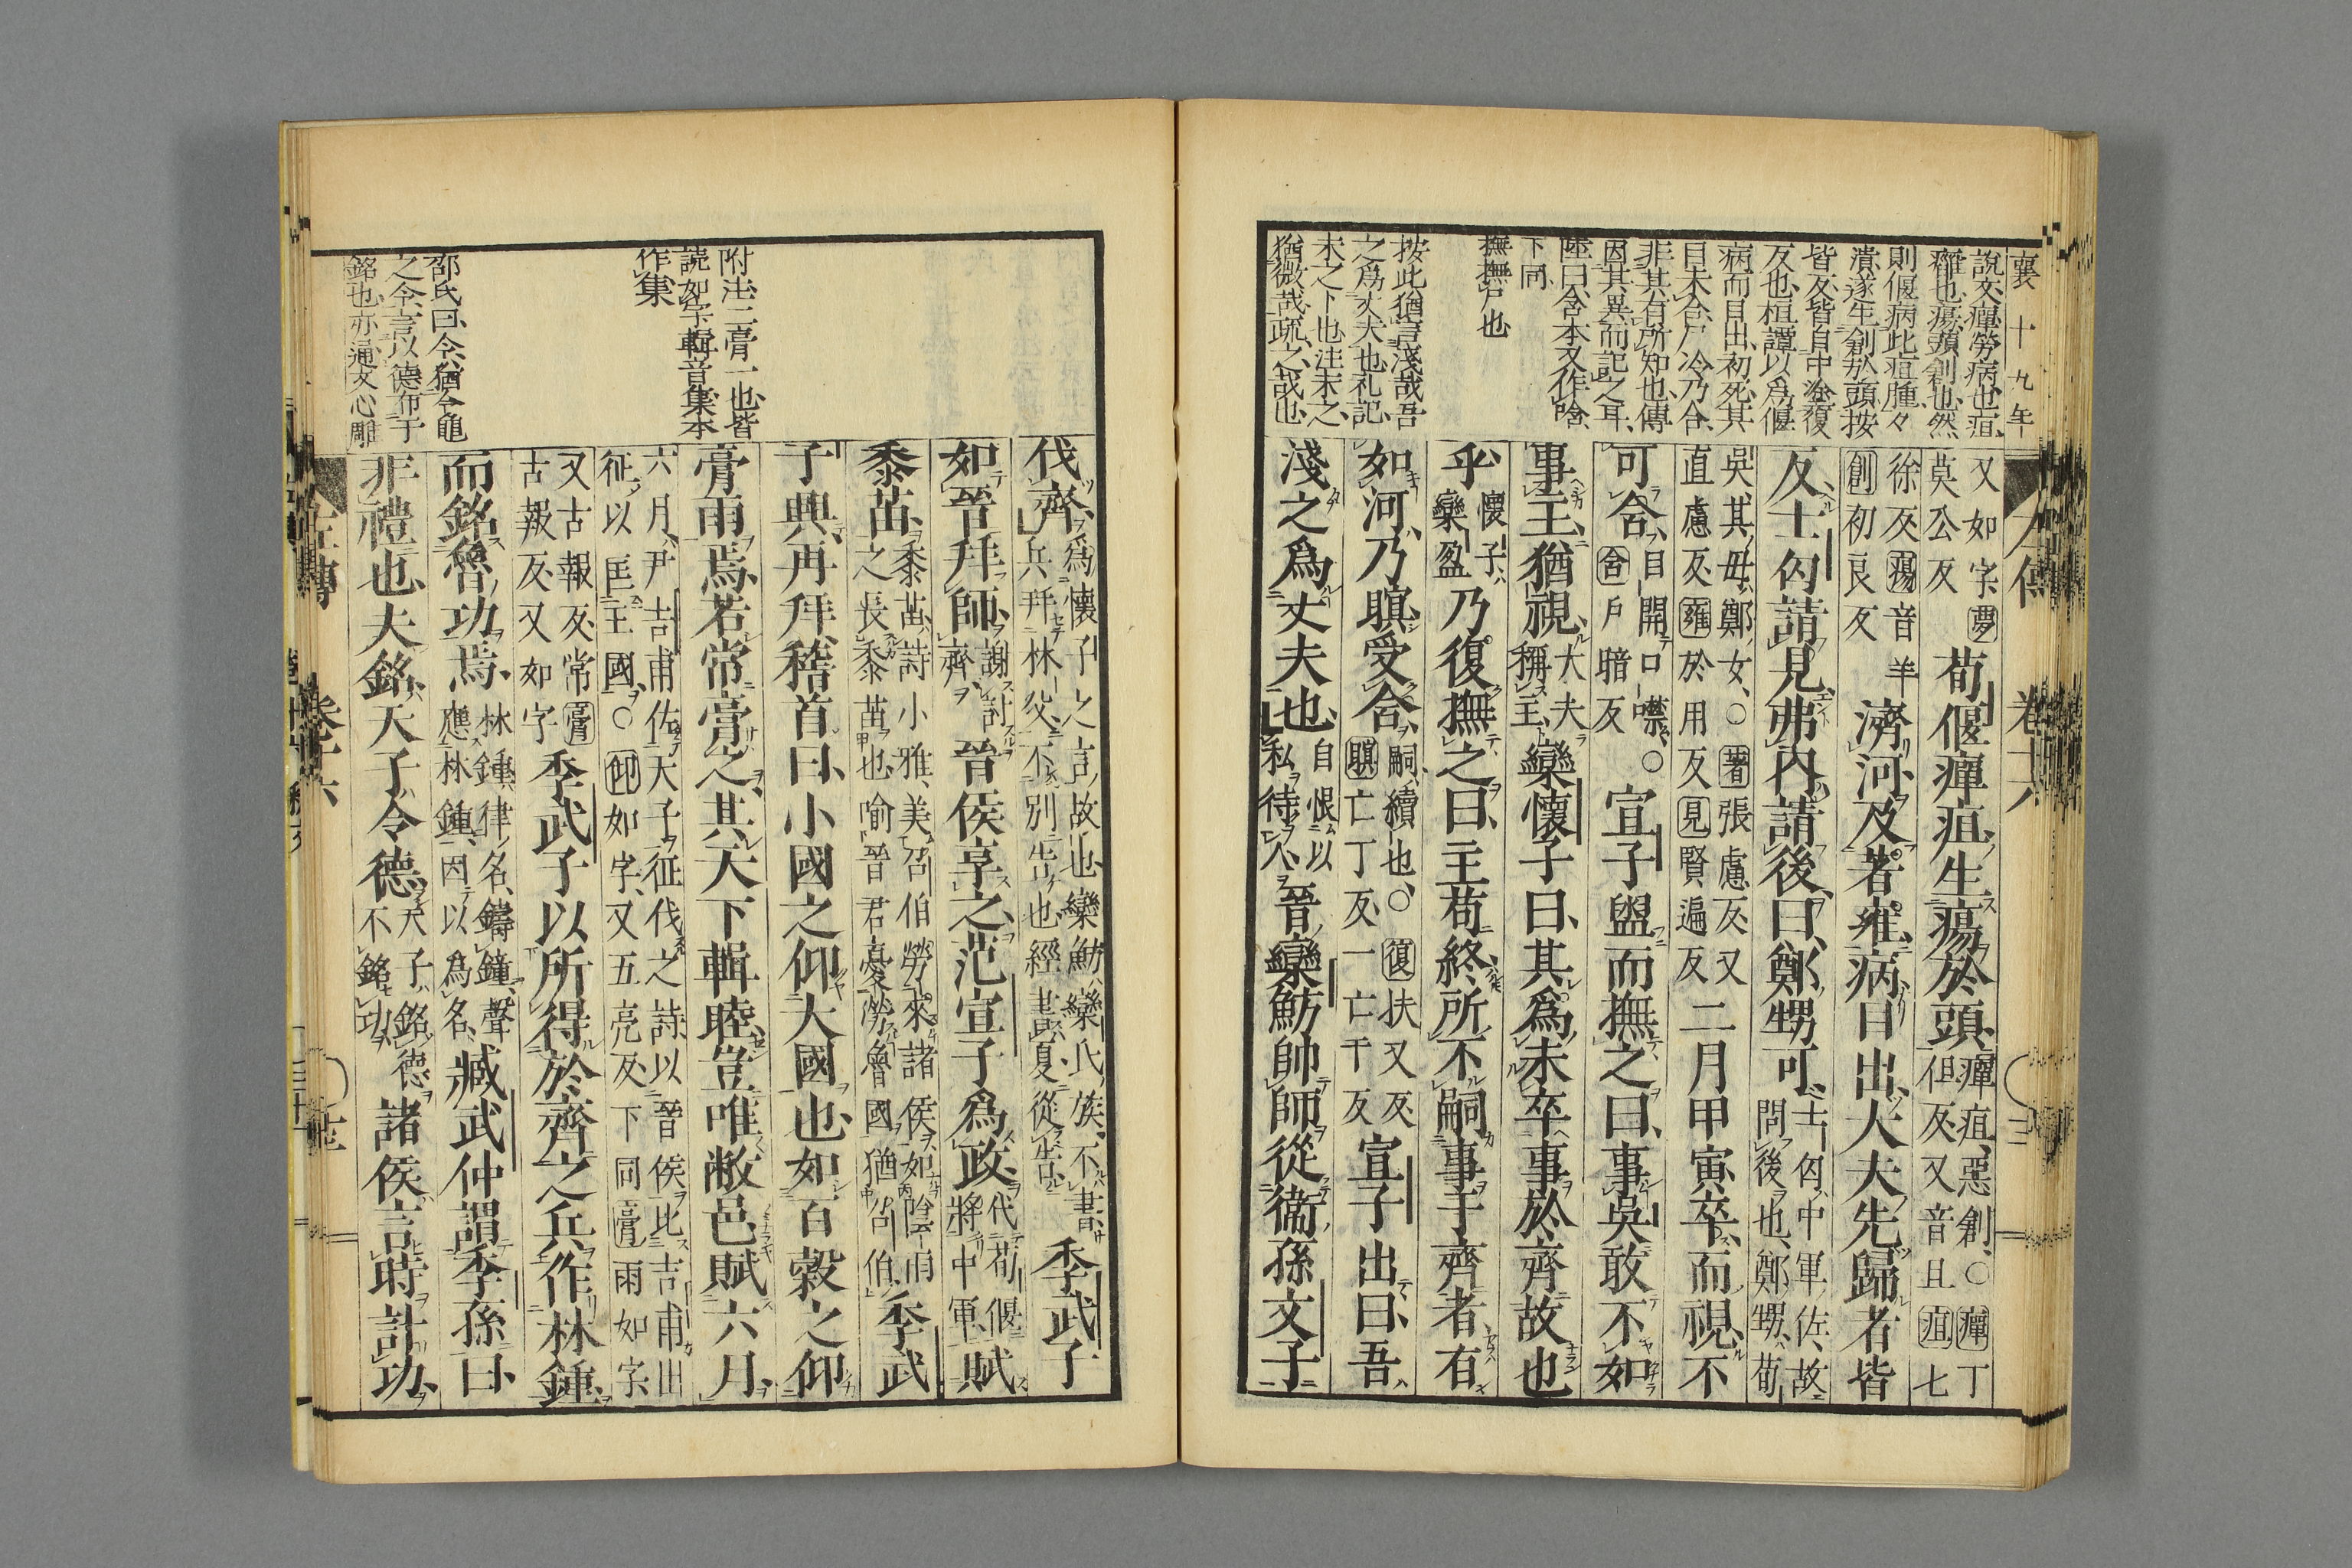 襄十九年
左傳
說文癉勞病也疽
癰也瘍頭創也然
則偃病此疽腫々
潰遂生創於頭按
皆反皆自中途復
反也桓譚以爲偃
病而目出初死其
目未合尸冷乃合
非其有所知也傳
因其異而記之耳
陸曰含本又作唅
下同
撫撫尸也
按此猶言淺哉吾
之爲丈夫也礼記
末之卜也注末之
猶微哉疏之哉也
又如字夢
莫公反
荀偃癉疽生瘍於頭
癉疽惡創〇癉丁
但反又音旦疽七
徐反瘍音羊
創初良反
濟河及著雍病目出大夫先歸者皆
反士匄請見弗内請後曰鄭甥可
士匄中軍佐故
問後也鄭甥荀
吳其母鄭女〇著張慮反又
直慮反雍於用反見賢遍反
二月甲寅卒而視不
可含
目開口噤〇
含戶暗反
宣子盥而撫之曰事吳敢不如
事主猶視
大夫
稱主
欒懷子曰其爲未卒事於齊故也
乎
懷子
欒盈
乃復撫之曰主苟終所不嗣事于齊者有
如河乃瞑受含
嗣續也〇復扶又反
瞑亡丁反一亡千反
宣子出曰吾
淺之爲丈夫也
自恨以
私待人
晉欒魴帥師從衞孫文子
附注二膏一也皆
読如字輯音集本
作集
邵氏曰令猶令龜
之令言以德布于
銘也亦通文心雕
伐齊
爲懷子之言故也欒魴欒氏族不書
兵幷林父不別告也經書夏從告
季武子
如晉拜師
謝討
齊
晉侯享之范宣子爲政
代荀偃
將中軍
賦
黍苗
黍苗詩小雅美召伯勞來諸侯如陰雨
之長黍苗也喻晉君憂勞魯國猶召伯
季武
子興再拜稽首曰小國之仰大國也如百穀之仰
膏雨焉若常膏之其天下輯睦豈唯敝邑賦六月
六月尹吉甫佐天子征伐之詩以晉侯比吉甫出
征以匡王國〇仰如字又五亮反下同膏雨如字
又古報反常膏
古報反又如字
季武子以所得於齊之兵作林鍾
而銘魯功焉
林鍾律名鑄鐘聲
應林鍾因以為名
臧武仲謂季孫曰
非禮也夫銘天子令德
天子銘德
不銘功
諸侯言時計功
左傳